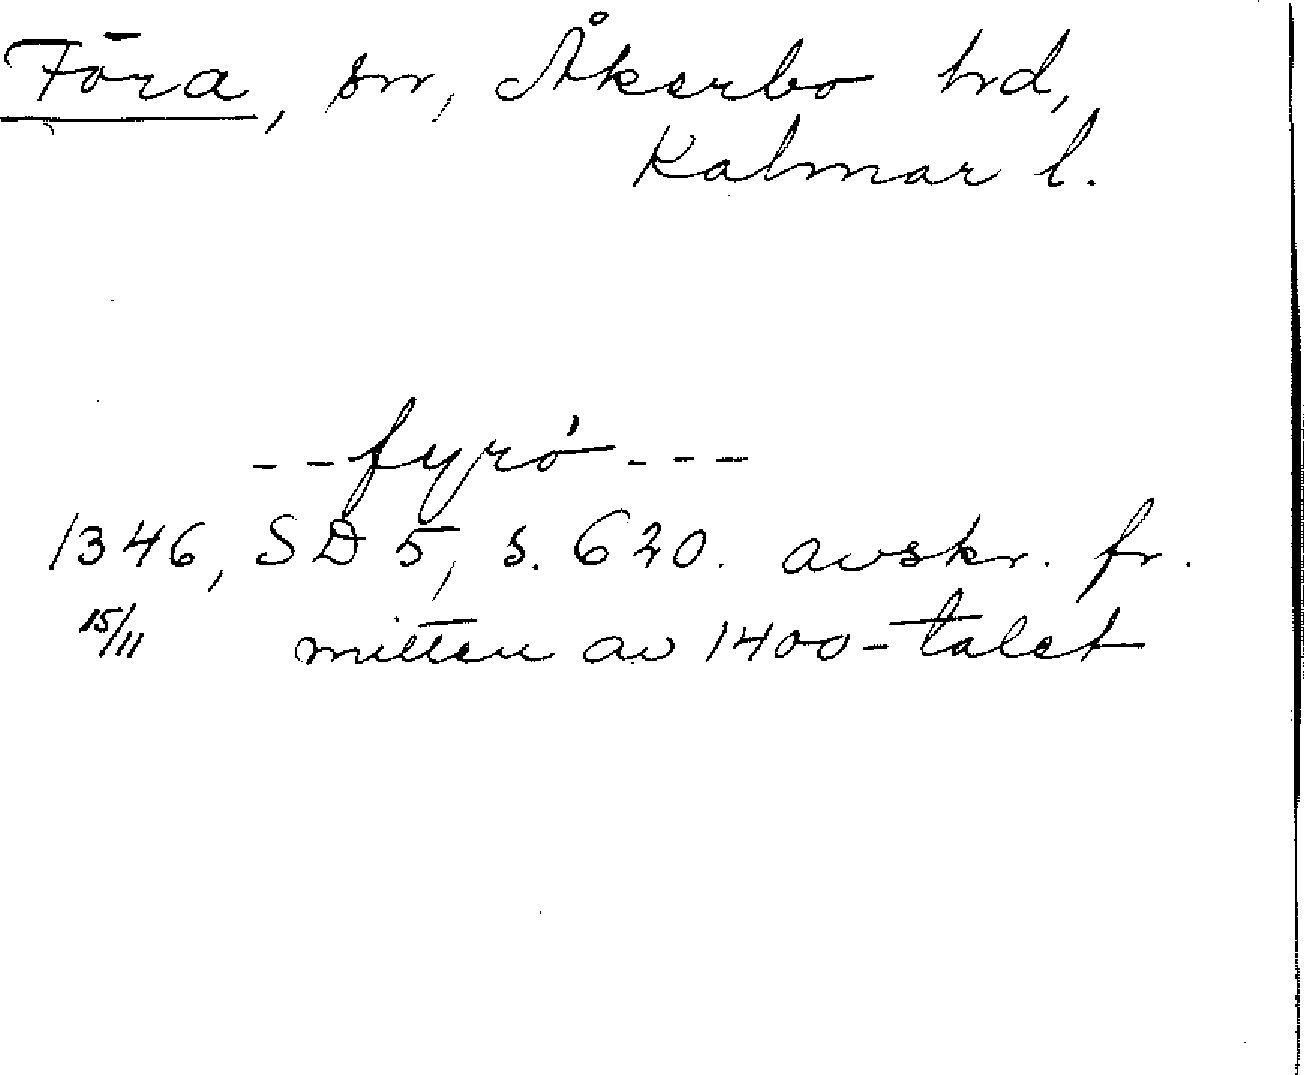 Föra, sn, Åkerbo hd,
Kalmar l.
--fyró---
1346, SD 5, s. 620. avskr. fr.
15/11 mitten av 1400-talet